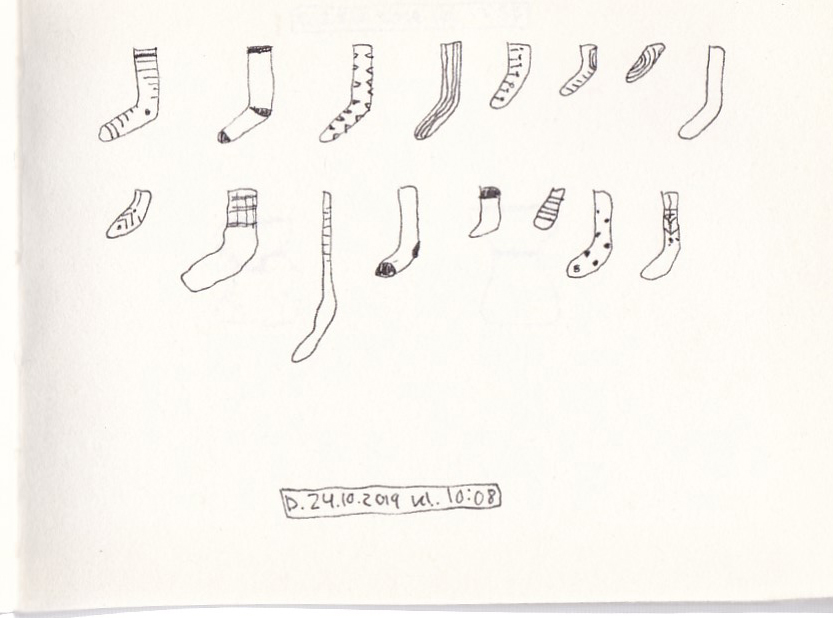 D. 24.10.2019 kl. 10:08